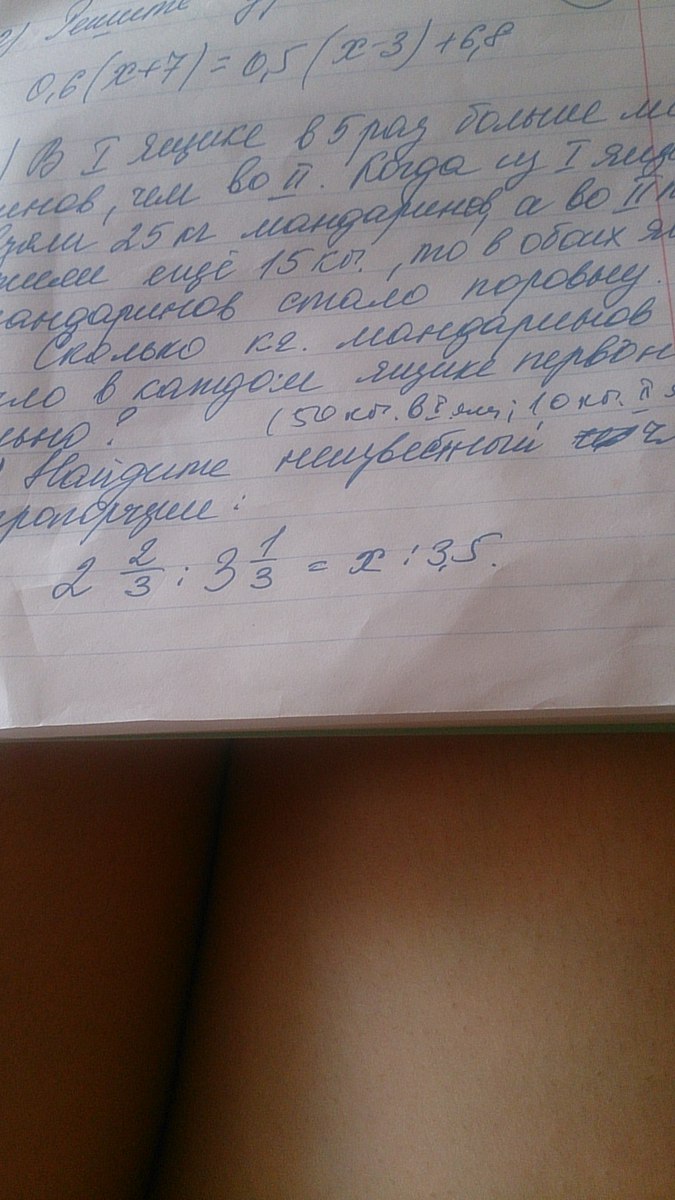 2) Решите
0,6(x+7)=0,5(x-3)+6,8
) В I ящике в 5 раз больше ма
инов, чем во II. Когда из I ящ
взяли 25 кг мандаринов, а во II п
жили ещё 15 кг., то в обоих я
мандаринов стало поровну.
Сколько кг. мандаринов
ло в каждом ящике первон
льно? (50 кг. в I ящ; 10 кг. II я
) Найдите неизвестный чл
пропорции:
2 2/3 : 3 1/3 = x : 3,5.